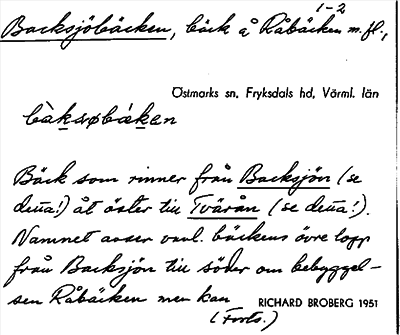 1-2
Backsjöbäcken, bäck å Råbäcken m.fl.,
Östmarks sn, Fryksdals hd, Värml. län
Bäck som rinner från Backsjön (se
detta!) åt öster till Tvärån (se detta!).
Namnet avser vanl. bäckens övre lopp
från Backsjön till söder om bebyggel-
sen Råbäcken men kan RICHARD BROBERG 1951
(Forts.)